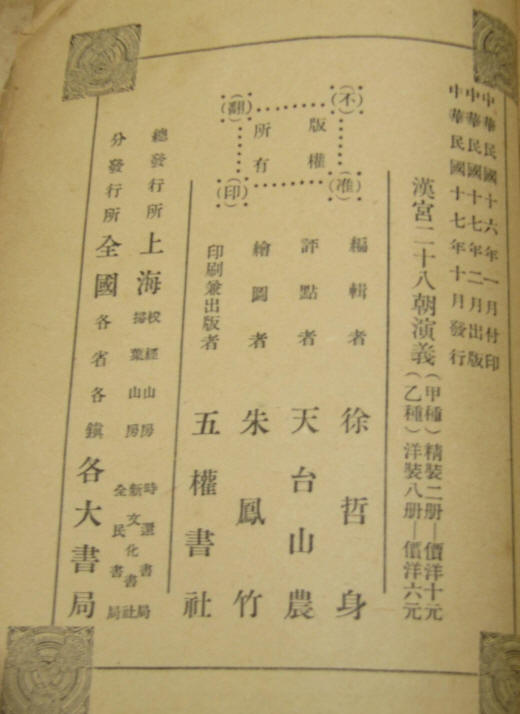 中華民國十六年一月付印
中華民國十七年二月出版
中華民國十七年十月發行
漢宮二十八朝演義
(甲種)精裝二册—價洋十元
(乙種)洋裝八册—價洋六元
(不)
(准)
(翻)
(印)
版權
所有
編輯者 徐哲身
評點者 天台山農
繪圖者 朱鳳竹
印刷兼出版者 五權書社
總發行所 上海
校經山房
掃葉山房
時還書局
新文化書社
全民書局
分發行所 全國各省各鎮各大書局